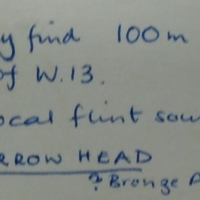 y find 100m
of W.13.
ocal flint sou
RROW HEAD
? Bronze A